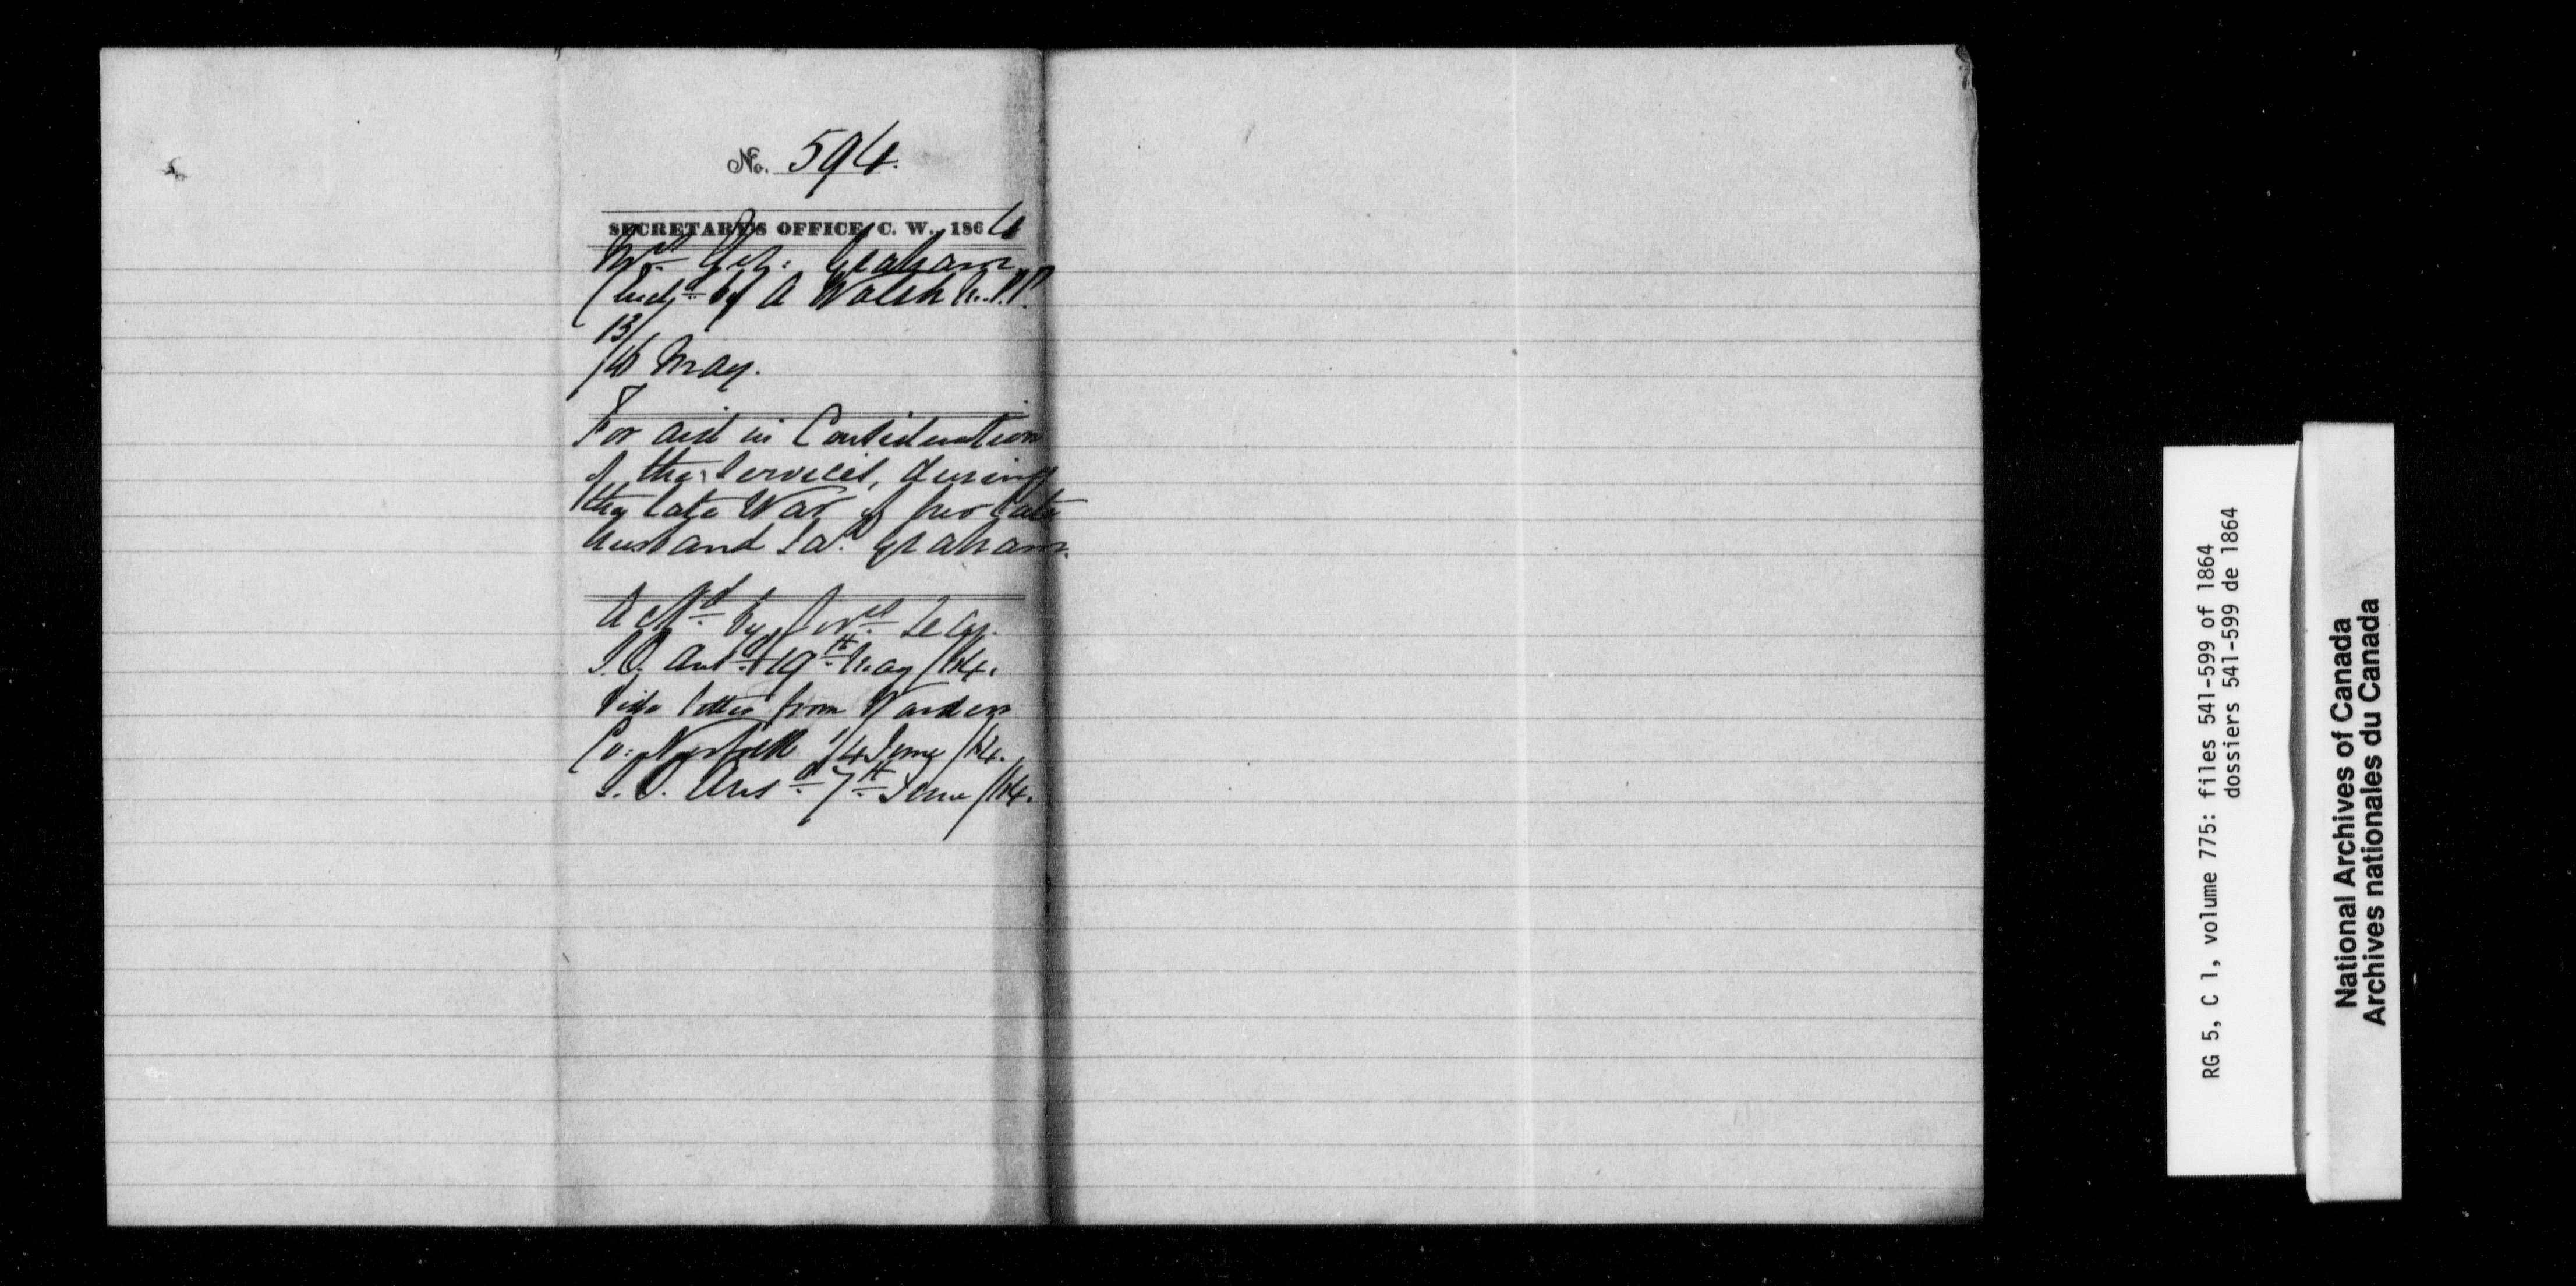 No. 594.
SECRETARY'S OFFICE, C. W., 1864
Mrs Graham
(Encd by A Walsh M.P.P.
13/
16 May.
For aid in Consideration
of the Services, during
the late War of her late
husband Jas. Graham.
Ackd by Secy.
S.O. Ansd 19th May /64.
Vide letter from Warden
Co: Norfolk 1/4 June /64.
S.O. Ansd 7th June /64.
RG 5, C 1, volume 775: files 541-599 of 1864
dossiers 541-599 de 1864
National Archives of Canada
Archives nationales du Canada